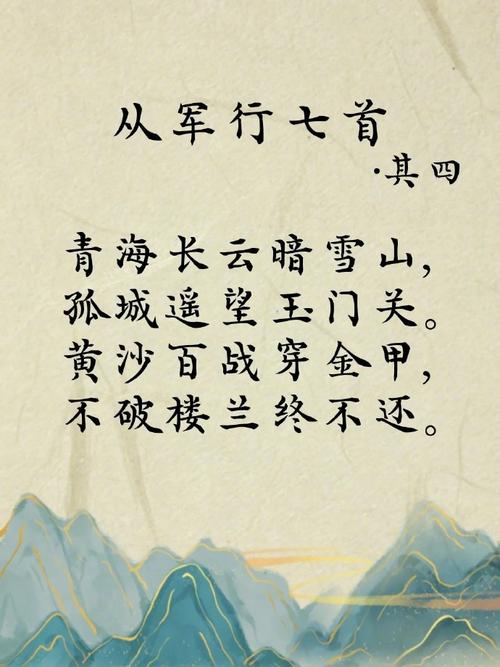 从军行七首
·其四
青海长云暗雪山，
孤城遥望玉门关。
黄沙百战穿金甲，
不破楼兰终不还。